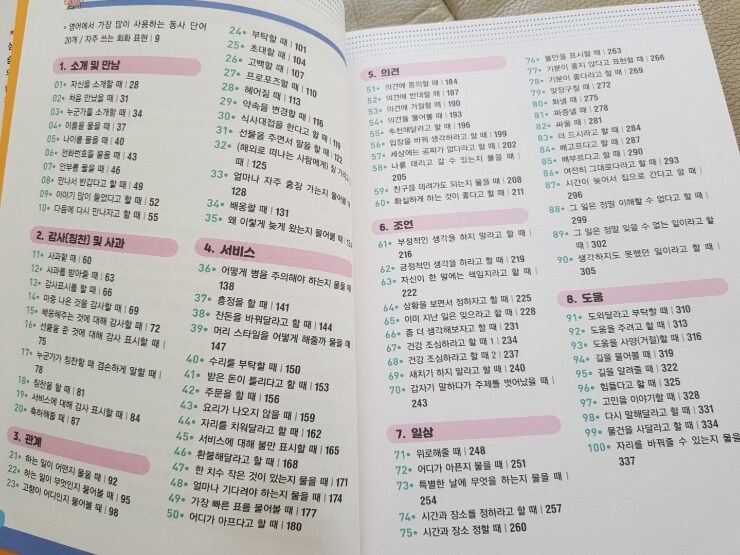 * 영어에서 가장 많이 사용하는 동사 단어
20개 / 자주 쓰는 회화 표현 | 9
1. 소개 및 만남
01• 자신을 소개할 때 | 28
02• 처음 만났을 때 | 31
03• 누군가를 소개할 때 | 34
04• 이름을 물을 때 | 37
05• 나이를 물을 때 | 40
06• 전화번호를 물을 때 | 43
07• 안부를 물을 때 | 46
08• 만나서 반갑다고 할 때 | 49
09• 이야기 많이 들었다고 할 때 | 52
10• 다음에 다시 만나자고 할 때 | 55
2. 감사(칭찬) 및 사과
11• 사과할 때 | 60
12• 사과를 받아줄 때 | 63
13• 감사표시를 할 때 | 66
14• 마중 나온 것을 감사할 때 | 69
15• 배웅해주는 것에 대해 감사할 때 | 72
16• 선물을 준 것에 대해 감사 표시할 때 |
75
17• 누군가가 칭찬할 때 겸손하게 말할 때 |
78
18• 칭찬을 할 때 | 81
19• 서비스에 대해 감사 표시할 때 | 84
20• 축하해줄 때 | 87
3. 관계
21• 하는 일이 어떤지 물을 때 | 92
22• 하는 일이 무엇인지 물어볼 때 | 95
23• 고향이 어디인지 물어볼 때 | 98
24• 부탁할 때 | 101
25• 초대할 때 | 104
26• 고백할 때 | 107
27• 프로포즈할 때 | 110
28• 헤어질 때 | 113
29• 약속을 변경할 때 | 116
30• 식사대접을 한다고 할 때 | 119
31• 선물을 주면서 말을 할 때 | 122
32• (해외로 떠나는 사람에게) 잘 가라고 할
때 | 125
33• 얼마나 자주 출장 가는지 물어볼 때
128
34• 배웅할 때 | 131
35• 왜 이렇게 늦게 왔는지 물어볼 때
4. 서비스
36• 어떻게 병을 주의해야 하는지 물을 때
138
37• 흥정을 할 때 | 141
38• 잔돈을 바꿔달라고 할 때 | 144
39• 머리 스타일을 어떻게 해줄까 물을 때
147
40• 수리를 부탁할 때 | 150
41• 받은 돈이 틀리다고 할 때 | 153
42• 주문을 할 때 | 156
43• 요리가 나오지 않을 때 | 159
44• 자리를 치워달라고 할 때 | 162
45• 서비스에 대해 불만 표시할 때 | 165
46• 환불해달라고 할 때 | 168
47• 한 치수 작은 것이 있는지 물을 때 | 171
48• 얼마나 기다려야 하는지 물을 때 | 174
49• 가장 빠른 표를 물어볼 때 | 177
50• 어디가 아프다고 할 때 | 180
5. 의견
51• 의견에 동의할 때 | 184
52• 의견에 반대할 때 | 187
53• 의견에 거절할 때 | 190
54• 의견을 물어볼 때 | 193
55• 추천해달라고 할 때 | 196
56• 입장을 바꿔 생각하라고 할 때 | 199
57• 세상에는 공짜가 없다고 할 때 | 202
58• 나를 데리고 갈 수 있는지 물을 때 |
205
59• 친구를 데려가도 되는지 물을 때 | 208
60• 확실하게 하는 것이 좋다고 할 때 | 211
6. 조언
61• 부정적인 생각을 하지 말라고 할 때 |
216
62• 긍정적인 생각을 하라고 할 때 | 219
63• 자신이 한 말에는 책임지라고 할 때 |
222
64• 상황을 보면서 정하자고 할 때 | 225
65• 이미 지난 일은 잊으라고 할 때 | 228
66• 좀 더 생각해보자고 할 때 | 231
67• 건강 조심하라고 할 때 1 | 234
68• 건강 조심하라고 할 때 2 | 237
69• 새치기 하지 말라고 할 때 | 240
70• 갑자기 말하다가 주제를 벗어났을 때 |
243
7. 일상
71• 위로해줄 때 | 248
72• 어디가 아픈지 물을 때 | 251
73• 특별한 날에 무엇을 하는지 물을 때 |
254
74• 시간과 장소를 정하라고 할 때 | 257
75• 시간과 장소 정할 때 | 260
76• 불만을 표시할 때 | 263
77• 기분이 좋지 않다고 표현할 때 | 266
78• 기분이 좋다라고 할 때 | 269
79• 맞장구칠 때 | 272
80• 화낼 때 | 275
81• 짜증낼 때 | 278
82• 싸울 때 | 281
83• 더 드시라고 할 때 | 284
84• 배고프다고 할 때 | 287
85• 배부르다고 할 때 | 290
86• 여전히 그대로다라고 할 때 | 293
87• 시간이 늦어서 집으로 간다고 할 때 |
296
88• 그 일은 정말 이해할 수 없다고 할 때 |
299
89• 그 일은 정말 잊을 수 없는 일이라고 할
때 | 302
90• 생각하지도 못했던 일이라고 할 때 |
305
8. 도움
91• 도와달라고 부탁할 때 | 310
92• 도움을 주려고 할 때 | 313
93• 도움을 사양(거절)할 때 | 316
94• 길을 물어볼 때 | 319
95• 길을 알려줄 때 | 322
96• 힘들다고 할 때 | 325
97• 고민을 이야기할 때 | 328
98• 다시 말해달라고 할 때 | 331
99• 물건을 사달라고 할 때 | 334
100• 자리를 바꿔줄 수 있는지 물을
337